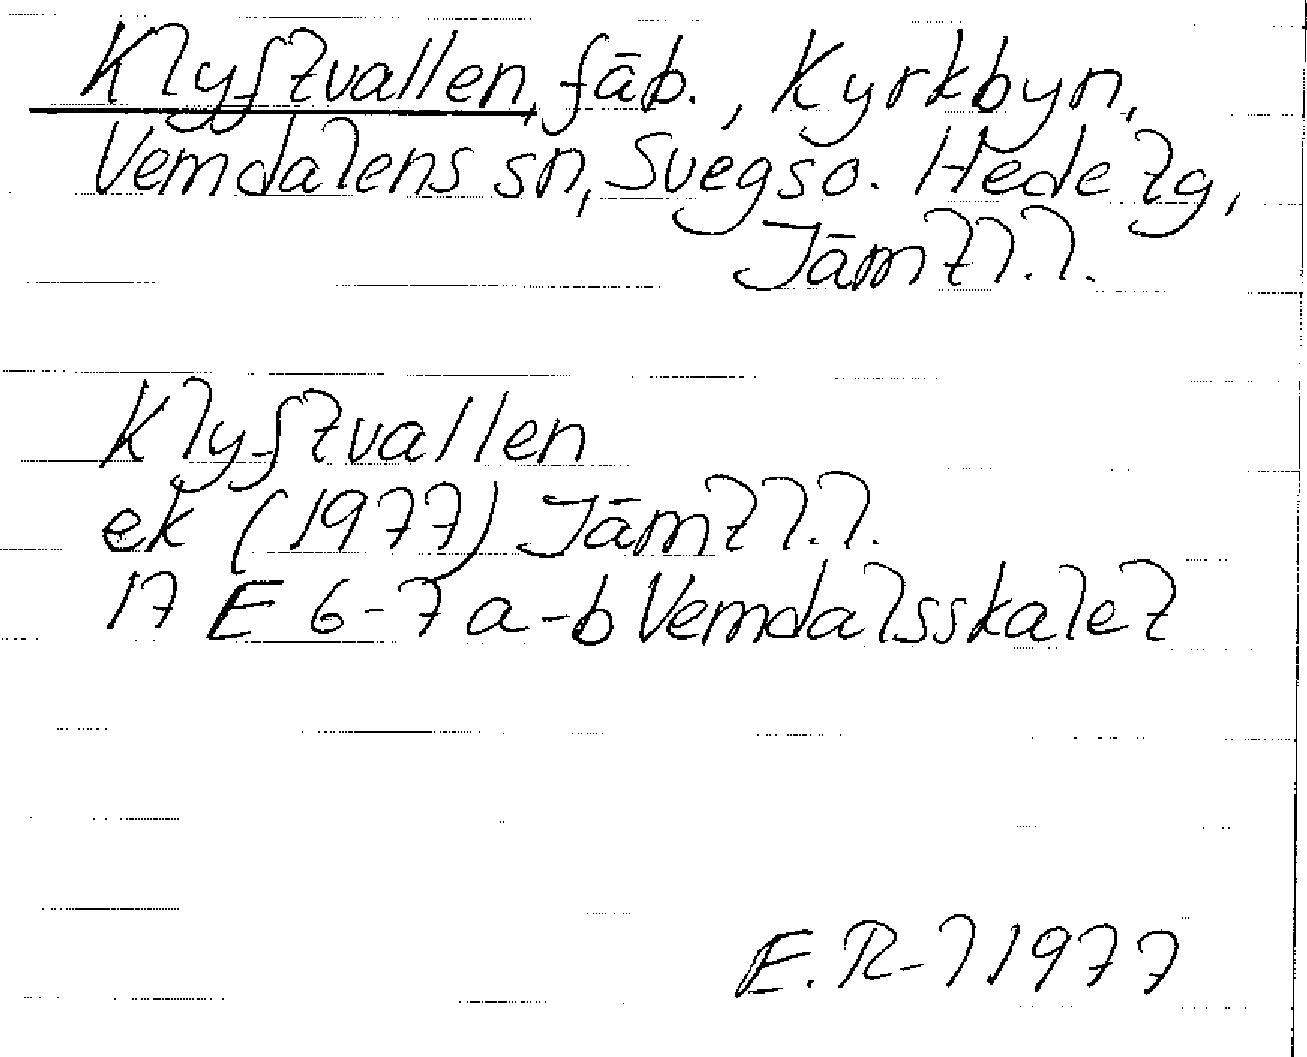 Klyftvallen, fäb., Kyrkbyn,
Vemdalens sn, Svegs o. Hede tg,
Jämtl.l.
Klyftvallen
ek (1977) Jämtl.l.
17 E 6-7 a-b Vemdalsskalet
E.R-l 1977